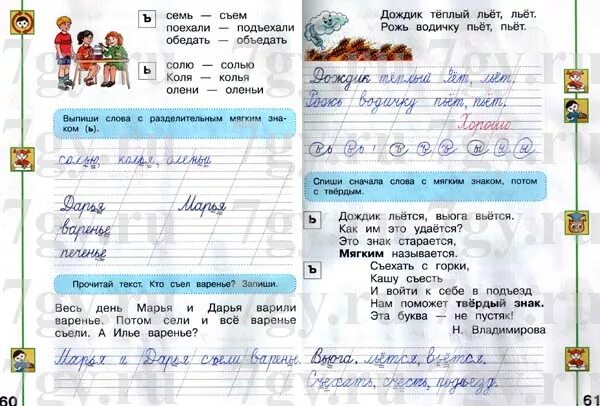 ъ
семь — съем
поехали — подъехали
обедать — объедать
ь
солю — солью
Коля — колья
олени — оленьи
Выпиши слова с разделительным мягким зна-
ком (ь).
солью, колья, оленьи
Дарья Марья
варенье
печенье
Прочитай текст. Кто съел варенье? Запиши.
Весь день Марья и Дарья варили
варенье. Потом сели и всё варенье
съели. А Илье варенье?
Марья и Дарья съели варенье.
60
Дождик тёплый льёт, льёт.
Рожь водичку пьёт, пьёт.
Дождик тёплый льёт, льёт.
Рожь водичку пьёт, пьёт.
Хорошо
Спиши сначала слова с мягким знаком, потом
с твёрдым.
ь
Дождик льётся, вьюга вьётся.
Как им это удаётся?
Это знак старается,
Мягким называется.
ъ
Съехать с горки,
Кашу съесть
И войти к себе в подъезд
Нам поможет твёрдый знак.
Эта буква — не пустяк!
Н. Владимирова
Вьюга, льётся, вьётся.
Съехать, съесть, подъезд.
61
7gy.ru